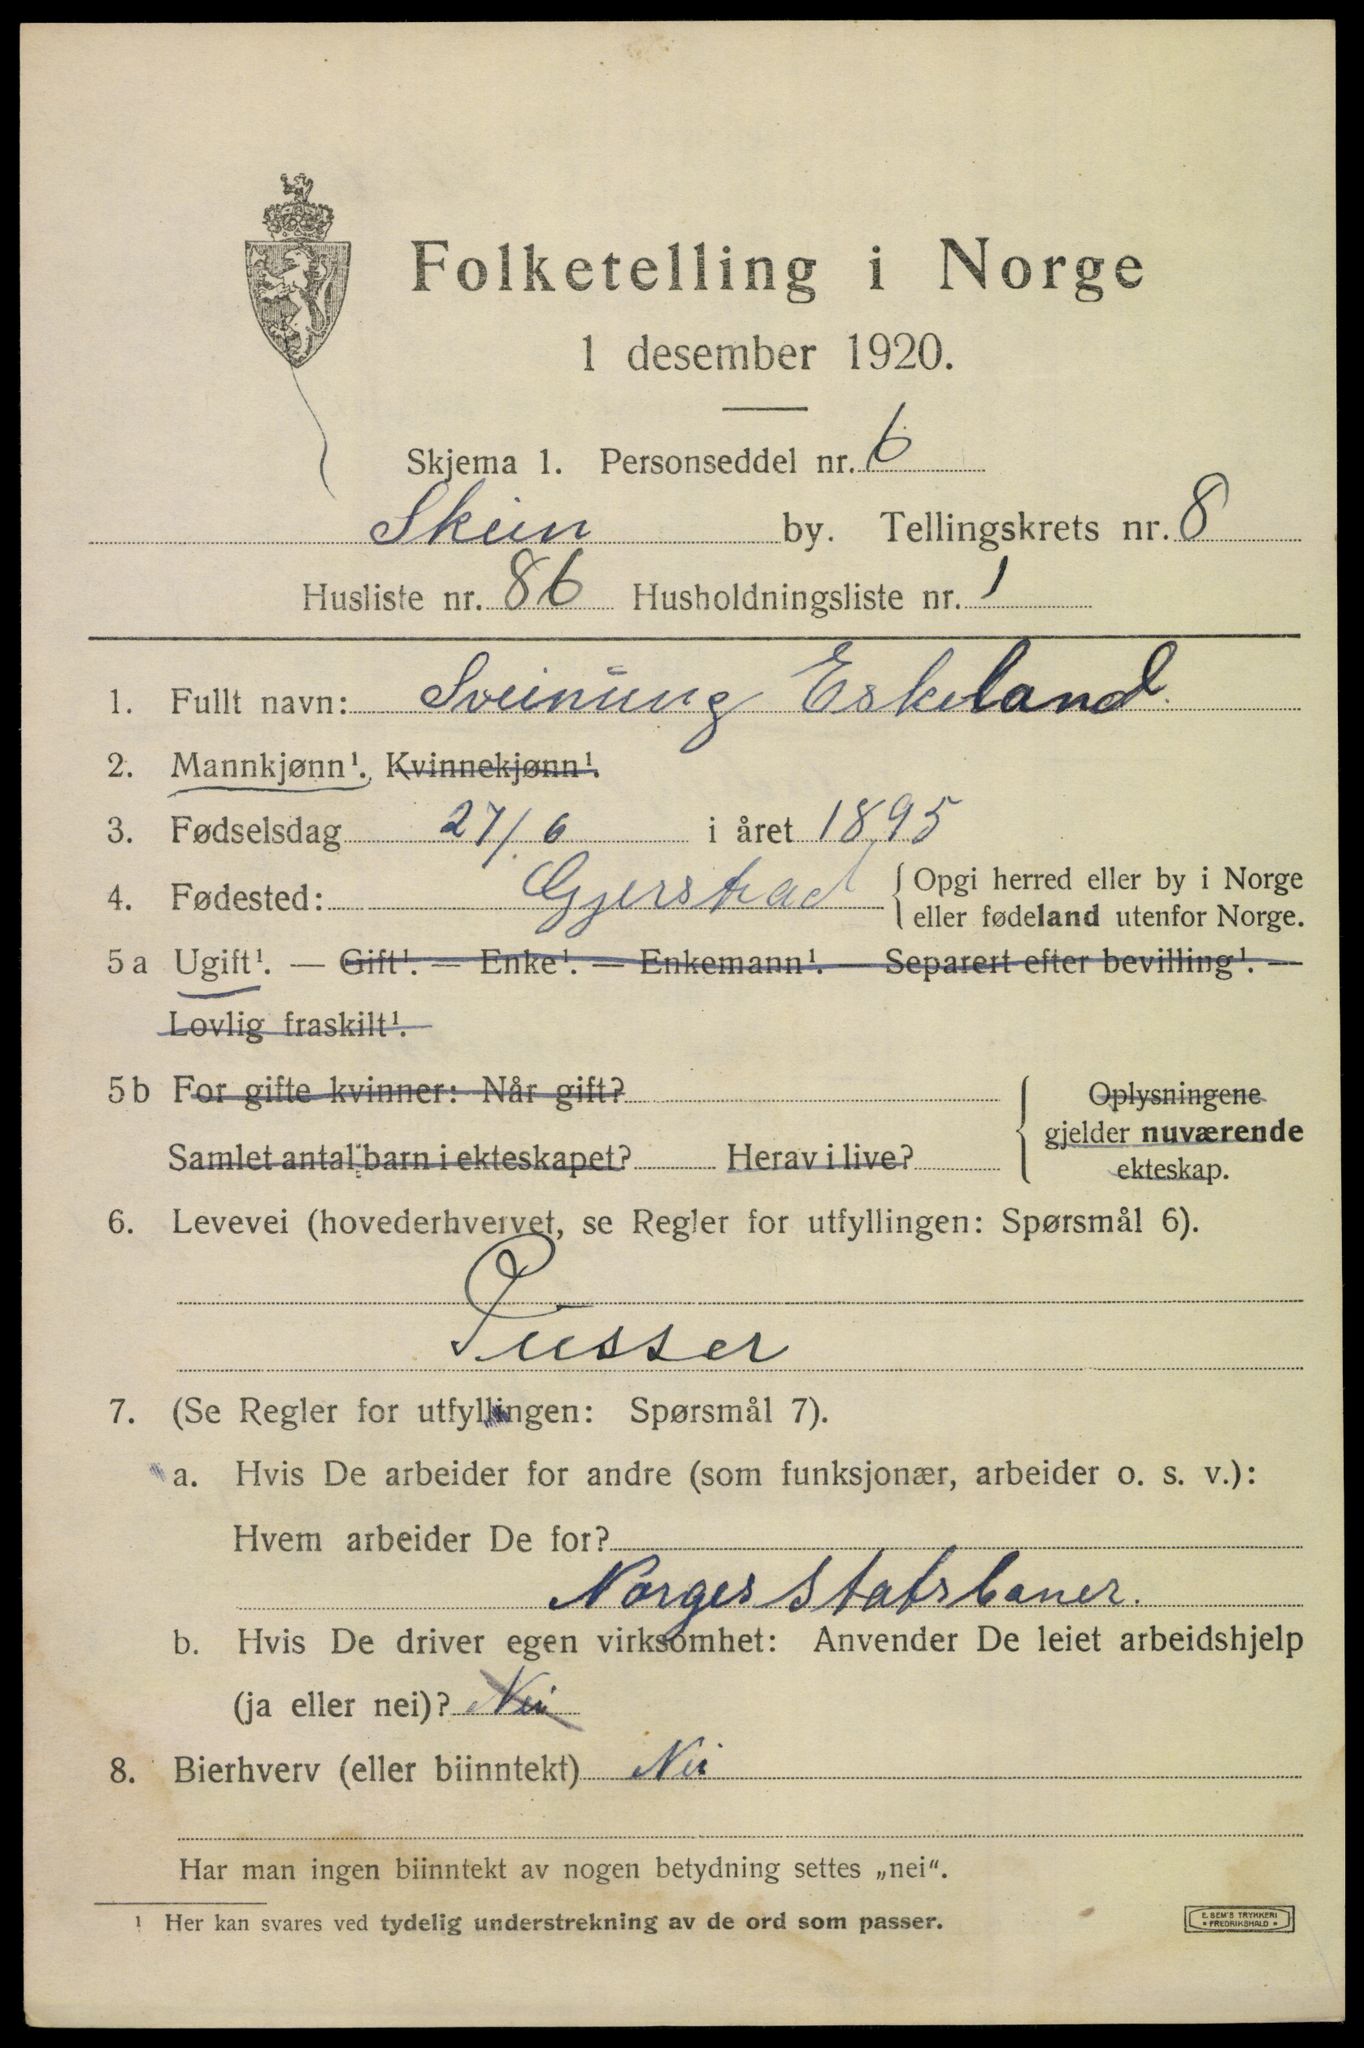 Folketelling i Norge
1 desember 1920.
Skjema 1. Personseddel nr. 6
Skien by. Tellingskrets nr. 8
Husliste nr. 86 Husholdningsliste nr. 1
1. Fullt navn: Sveinung Eskeland.
2. Mannkjønn¹. Kvinnekjønn¹.
3. Fødselsdag 27/6 i året 1895
4. Fødested: Gjerstad { Opgi herred eller by i Norge
eller fødeland utenfor Norge.
5a Ugift¹. — Gift¹. — Enke¹. — Enkemann¹. — Separert efter bevilling¹. —
Lovlig fraskilt¹.
5b For gifte kvinner: Når gift? { Oplysningene
gjelder nuværende
Samlet antal barn i ekteskapet? Herav i live?
ekteskap.
6. Levevei (hovederhvervet, se Regler for utfyllingen: Spørsmål 6).
Pusser
7. (Se Regler for utfyllingen: Spørsmål 7).
a. Hvis De arbeider for andre (som funksjonær, arbeider o. s. v.):
Hvem arbeider De for?
Norges Statsbaner.
b. Hvis De driver egen virksomhet: Anvender De leiet arbeidshjelp
(ja eller nei)? Nei
8. Bierhverv (eller biinntekt) Nei
Har man ingen biinntekt av nogen betydning settes „nei".
¹ Her kan svares ved tydelig understrekning av de ord som passer.
E. SEM'S TRYKKERI
• FREDRIKSHALD •